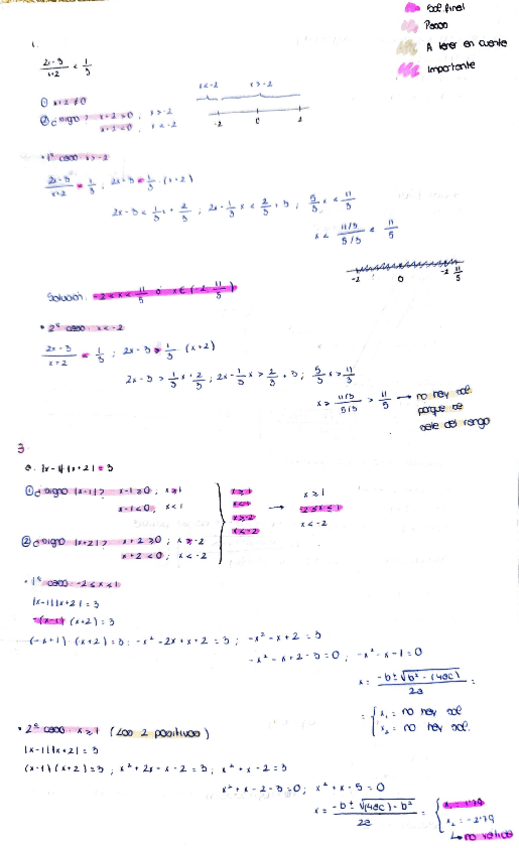 Sol final
Paso
A tener en cuenta
Importante
1.
(2x-3)/(x+2) < 1/3
① x+2≠0
② ¿signo? x+2>0; x>-2
x+2<0; x<-2
x<-2 x>-2
-2 0 2
• 1º caso x>-2
(2x-3)/(x+2) < 1/3; 2x-3 < 1/3 · (x+2)
2x-3 < 1/3 x + 2/3; 2x - 1/3 x < 2/3 + 3; 5/3 x < 11/3
x < (11/3)/(5/3) < 11/5
-2 0 -2 11/5
Solución: -2<x<11/5 ó x∈(-2, 11/5)
• 2º caso: x<-2
(2x-3)/(x+2) < 1/3; 2x-3 > 1/3 (x+2)
2x-3 > 1/3 x + 2/3; 2x - 1/3 x > 2/3 + 3; 5/3 x > 11/3
x > (11/3)/(5/3) > 11/5 → no hay sol
porque se
sale del rango
3.
a. |x-1||x+2|=3
① ¿signo |x-1|? x-1≥0; x≥1
x-1<0; x<1
② ¿signo |x+2|? x+2≥0; x≥-2
x+2<0; x<-2
x≥1
x<1
x≥-2
x<-2
→ x≥1
-2≤x<1
x<-2
• 1º caso: -2≤x<1
|x-1||x+2|=3
-(x-1)(x+2)=3
(-x+1)(x+2)=3; -x²-2x+x+2=3; -x²-x+2=3
-x²-x+2-3=0; -x²-x-1=0
x = (-b±√(b²-(4ac)))/2a =
= { x₁ = no hay sol
x₂ = no hay sol.
• 2º caso: x≥1 (Los 2 positivos)
|x-1||x+2|=3
(x-1)(x+2)=3; x²+2x-x-2=3; x²+x-2=3
x²+x-2-3=0; x²+x-5=0
x = (-b±√((4ac)-b²))/2a = { x₁ = 1'79
x₂ = -2'79
↳ no válido